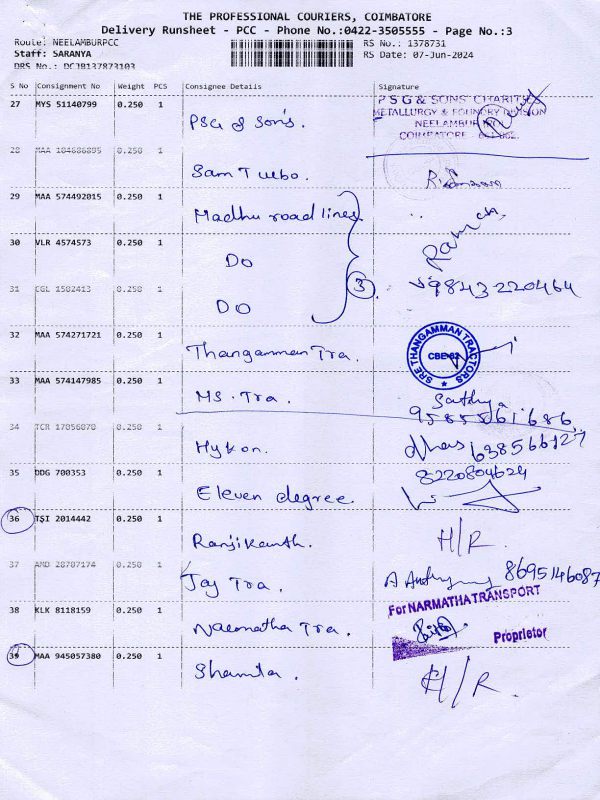 THE PROFESSIONAL COURIERS, COIMBATORE
Delivery Runsheet - PCC - Phone No.:0422-3505555 - Page No.:3
Route: NEELAMBURPCC RS No.: 1378731
Staff: SARANYA RS Date: 07-Jun-2024
DRS No.: DCJB137873103
S No Consignment No Weight PCS Consignee Details Signature
27 MYS 51140799 0.250 1 PSG & Son's. PSG & SONS' CHARITIES
METALLURGY & FOUNDRY DIVISION
NEELAMBUR
COIMBATORE
28 MAA 184686895 0.250 1 Sam Turbo.
29 MAA 574492015 0.250 1 Madhu road lines
30 VLR 4574573 0.250 1 Do Ram
31 CGL 1582413 0.250 1 Do 3 9843220464
32 MAA 574271721 0.250 1 Thangamman Tra. SRE THANGAMMAN TRACTORS
CBE-62
33 MAA 574147985 0.250 1 MS. Tra. Sathya
9585561686
34 TCR 17056078 0.250 1 Hykon. dhas 638566127
35 DDG 700353 0.250 1 Eleven degree. 8220804624
36 TSI 2014442 0.250 1 Ranjikanth. H/R.
37 AMD 28787174 0.250 1 Jay Tra. 8695146087
38 KLK 8118159 0.250 1 Narmatha Tra. For NARMATHA TRANSPORT
Proprietor
39 MAA 945057380 0.250 1 Shamla. H/R.